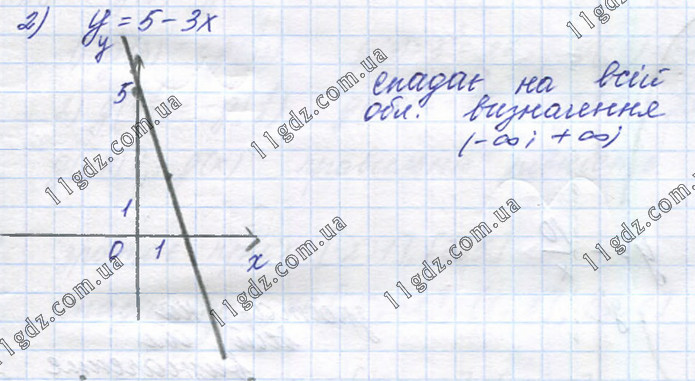 2) y = 5 - 3x
y
5
спадає на всій
обл. визначення
(-∞; +∞)
1
0 1 x
11gdz.com.ua
11gdz.com.ua
11gdz.com.ua
11gdz.com.ua
11gdz.com.ua
11gdz.com.ua
11gdz.com.ua